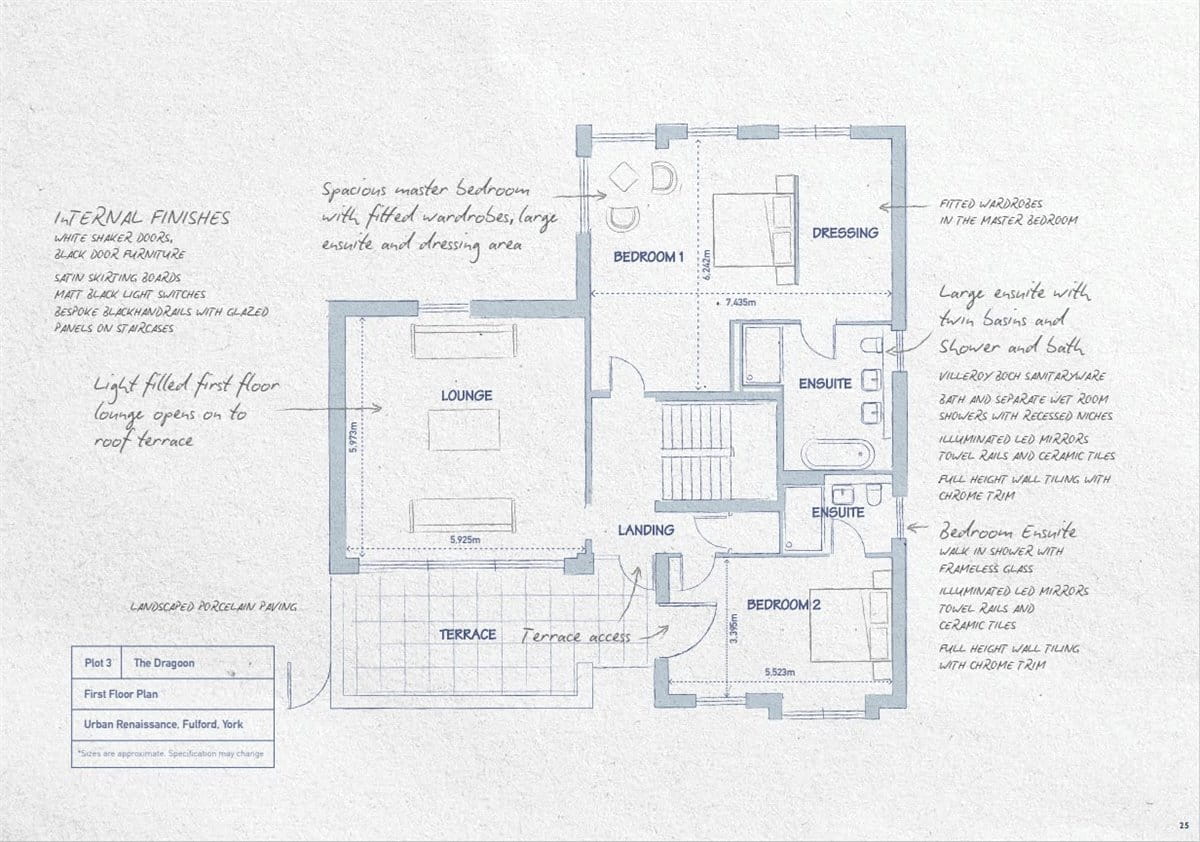 InTERNAL FINISHES
WHITE SHAKER DOORS,
BLACK DOOR FURNITURE
SATIN SKIRTING BOARDS
MATT BLACK LIGHT SWITCHES
BESPOKE BLACKHANDRAILS WITH GLAZED
PANELS ON STAIRCASES
Spacious master bedroom
with fitted wardrobes, large
ensuite and dressing area
Light filled first floor
lounge opens on to
roof terrace
LANDSCAPED PORCELAIN PAVING
BEDROOM 1
6,242m
7,435m
DRESSING
LOUNGE
5,973m
5,925m
ENSUITE
ENSUITE
LANDING
TERRACE
Terrace access
BEDROOM 2
3,395m
5,523m
FITTED WARDROBES
IN THE MASTER BEDROOM
Large ensuite with
twin basins and
Shower and bath
VILLEROY BOCH SANITARYWARE
BATH AND SEPARATE WET ROOM
SHOWERS WITH RECESSED NICHES
ILLUMINATED LED MIRRORS
TOWEL RAILS AND CERAMIC TILES
FULL HEIGHT WALL TILING WITH
CHROME TRIM
Bedroom Ensuite
WALK IN SHOWER WITH
FRAMELESS GLASS
ILLUMINATED LED MIRRORS
TOWEL RAILS AND
CERAMIC TILES
FULL HEIGHT WALL TILING
WITH CHROME TRIM
Plot 3 The Dragoon
First Floor Plan
Urban Renaissance, Fulford, York
*Sizes are approximate. Specification may change
25